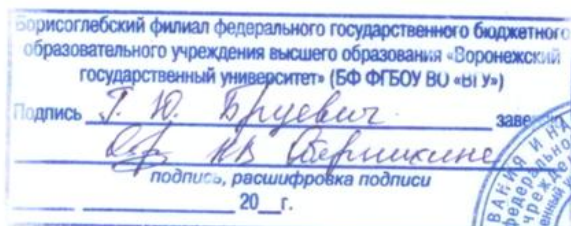 Борисоглебский филиал федерального государственного бюджетного
образовательного учреждения высшего образования «Воронежский
государственный университет» (БФ ФГБОУ ВО «ВГУ»)
Подпись Г. Ю. Бруевич
подпись, расшифровка подписи
20 г.